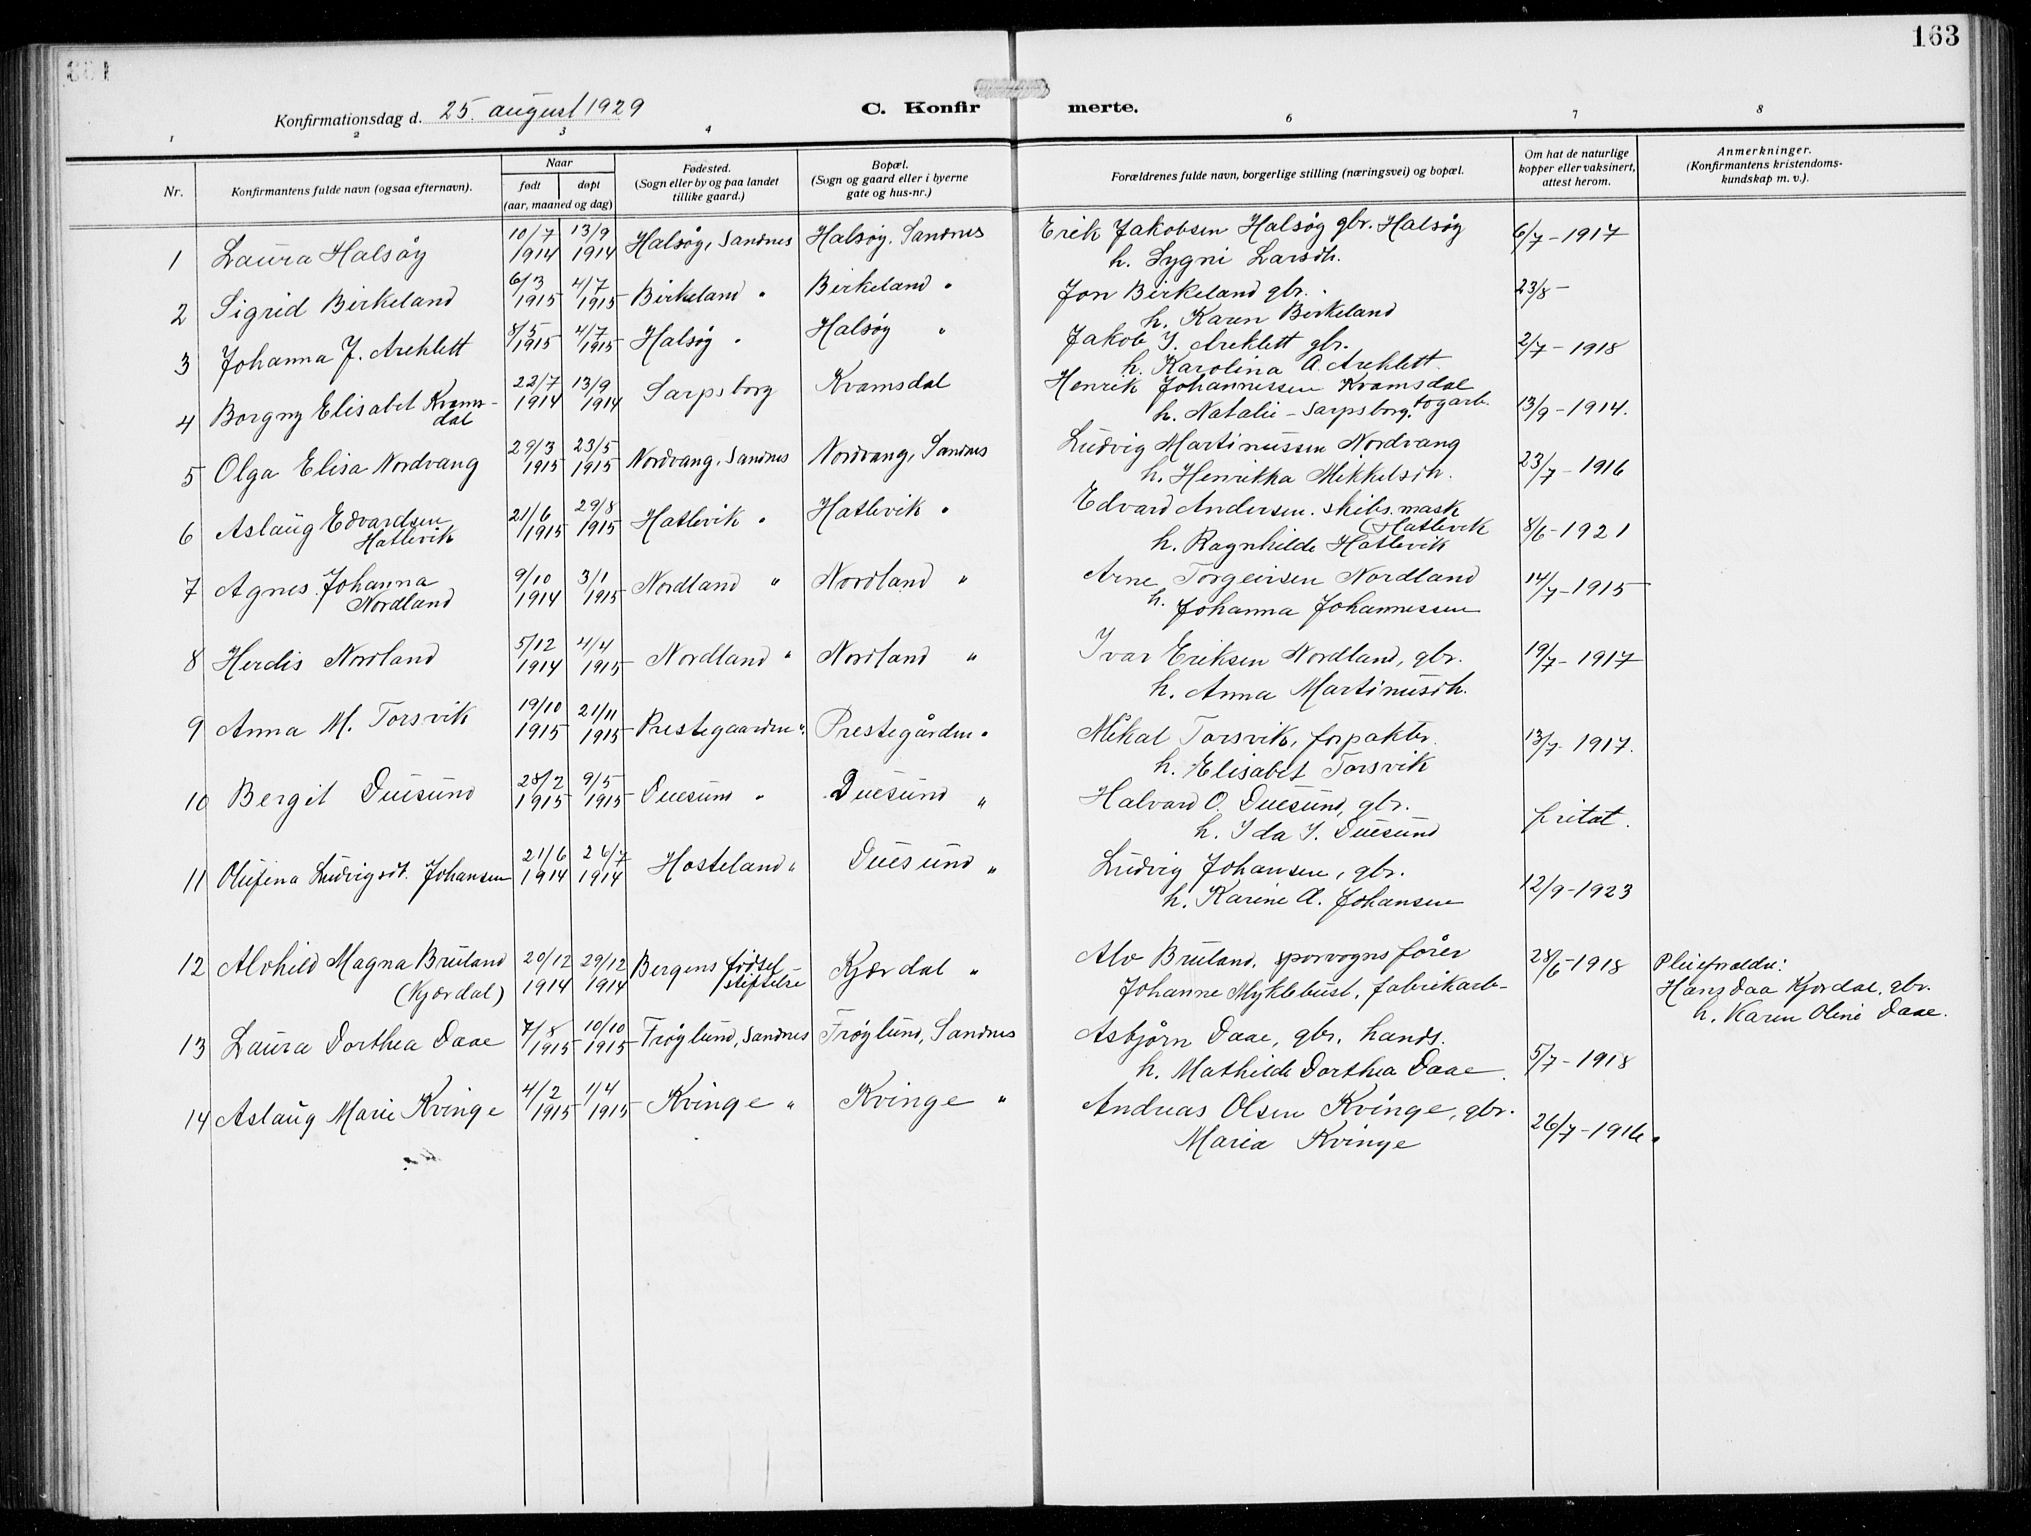 163
Konfirmationsdag d. 25. august 1929
C. Konfirmerte.
1 2 3 4 6 7 8
Nr.
Konfirmantens fulde navn (ogsaa efternavn).
Naar
født
døpt
(aar, maaned og dag)
Fødested.
(Sogn eller by og paa landet
tillike gaard.)
Bopæl.
(Sogn og gaard eller i byerne
gate og hus-nr.)
Forældrenes fulde navn, borgerlige stilling (næringsvei) og bopæl.
Om hat de naturlige
kopper eller vaksinert,
attest herom.
Anmerkninger.
(Konfirmantens kristendoms-
kundskap m. v.).
1 Laura Halsøy 10/7 1914 13/9 1914 Halsøy, Sandnes Halsøy, Sandnes Erik Jakobsen Halsøy gbr. Halsøy 6/7-1917
h. Sygni Larsdh.
2 Sigrid Birkeland 6/3 1915 4/7 1915 Birkeland " Birkeland " Jon Birkeland gbr. 23/8 -
h. Karen Birkeland
3 Johanna J. Areklett 8/5 1915 4/7 1915 Halsøy " Halsøy " Jakob I. Areklett gbr. 2/7-1918
h. Karolina A. Areklett.
4 Borgny Elisabet Kvams-
dal 22/7 1914 13/9 1914 Sarpsborg Kvamsdal Henrik Johannessen Kvamsdal
h. Natalie - Sarpsborg. togarb. 13/9-1914.
5 Olga Elisa Nordvang 29/3 1915 23/5 1915 Nordvang, Sandnes Nordvang, Sandnes Ludvig Martinussen Nordvang
h. Henrikka Mikkelsdh. 23/7-1916
6 Aslaug Edvardsen
Hatlevik 21/6 1915 29/8 1915 Hatlevik " Hatlevik " Edvard Andersen. skibs.mask
Hatlevik
h. Ragnhilde Hatlevik 8/6-1921
7 Agnes Johanna
Nordland 9/10 1914 3/1 1915 Nordland " Nordland " Arne Torgeirsen Nordland
h. Johanna Johannessen 14/7-1915
8 Herdis Nordland 5/12 1914 4/4 1915 Nordland " Nordland " Ivar Eriksen Nordland, gbr. 19/7-1917
h. Anna Martinusdh.
9 Anna M. Torsvik 19/10 1915 21/11 1915 Prestegaarden " Prestegården " Mikal Torsvik, forpakter. 13/7-1917.
h. Elisabet Torsvik
10 Bergit Duesund 28/2 1915 9/5 1915 Duesund " Duesund " Halvard O. Duesund, gbr.
h. Ida I. Duesund fritat.
11 Olufina Ludvigsdt. Johansen 21/6 1914 26/7 1914 Hosteland " Duesund " Ludvig Johansen, gbr.
h. Karine A. Johansen 12/9-1923
12 Alvhild Magna Bruland
(Kjærdal) 20/12 1914 29/12 1914 Bergens fødsel
stiftelse Kjærdal " Alv Bruland, sporvognsfører 28/6-1918 Pleieforældre:
Johanne Myklebust, fabrikarb- Hans Daa Kjærdal, gbr.
h. Karen Oline Daae.
13 Laura Dorthea Daae 7/8 1915 10/10 1915 Frøylund, Sandnes Frøylund, Sandnes Asbjørn Daae, gbr. hands.
h. Mathilde Dorthea Daae. 5/7-1918
14 Aslaug Marie Kvinge 4/2 1915 1/4 1915 Kvinge " Kvinge " Andreas Olsen Kvinge, gbr.
Maria Kvinge 26/7-1916.